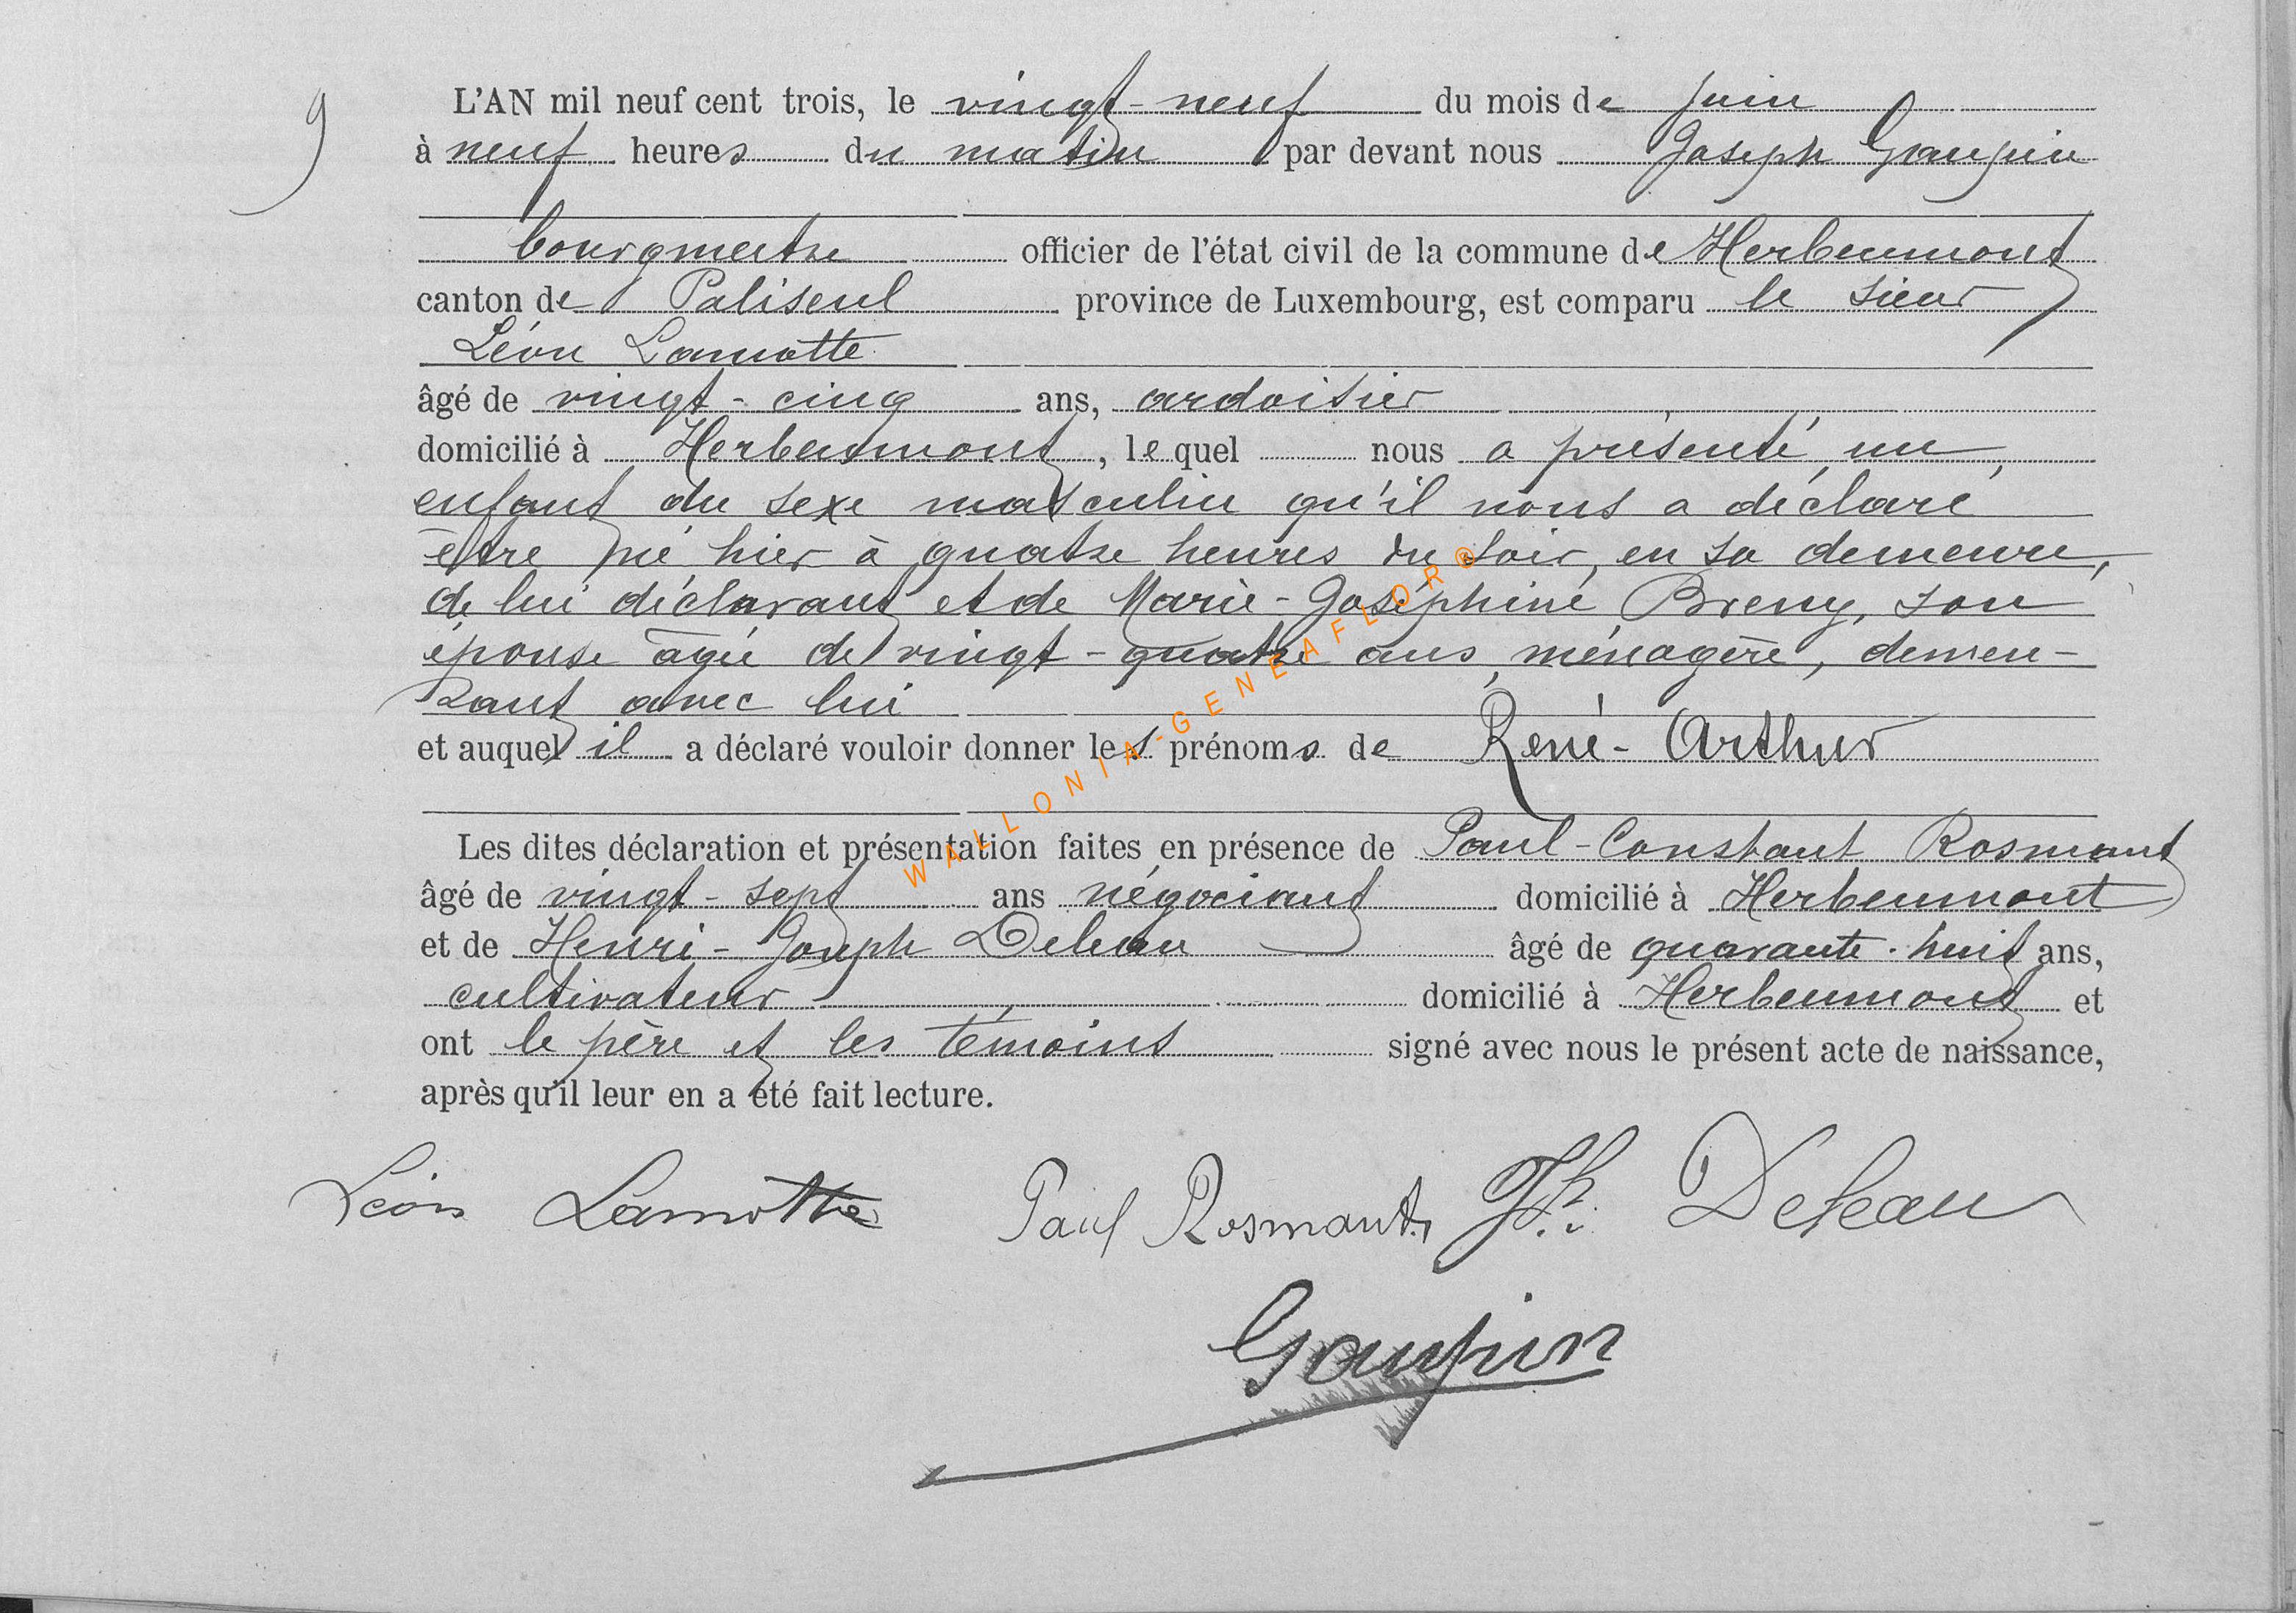 9
L'AN mil neuf cent trois, le vingt-neuf du mois de juin
à neuf heures du matin par devant nous Joseph Gaupin
bourgmestre officier de l'état civil de la commune de Herbeumont
canton de Paliseul province de Luxembourg, est comparu le sieur
Léon Lamotte
âgé de vingt-cinq ans, ardoisier
domicilié à Herbeumont, lequel nous a présenté un
enfant du sexe masculin qu'il nous a déclaré
être né hier à quatre heures du soir, en sa demeure,
de lui déclarant et de Marie-Joséphine Breny, son
épouse âgée de vingt-quatre ans, ménagère, demeu-
rant avec lui
et auquel il a déclaré vouloir donner les prénoms de René-Arthur
Les dites déclaration et présentation faites en présence de Paul-Constant Rosmant
âgé de vingt-sept ans négociant domicilié à Herbeumont
et de Henri-Joseph Deleau âgé de quarante-huit ans,
cultivateur domicilié à Herbeumont et
ont le père et les témoins signé avec nous le présent acte de naissance,
après qu'il leur en a été fait lecture.
Léon Lamotte Paul Rosmant Deleau
Gaupin
WALLONIA-GENEAFLOR®